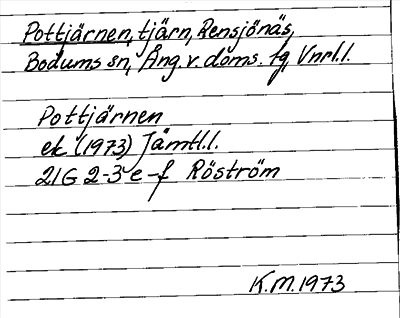 Pottjärnen, tjärn, Rensjönäs,
Bodums sn, Ång. v. doms. tg, Vnrl.l.
Pottjärnen
ek (1973) Jämtl.l.
21G 2-3 e-f Röström
K.M. 1973